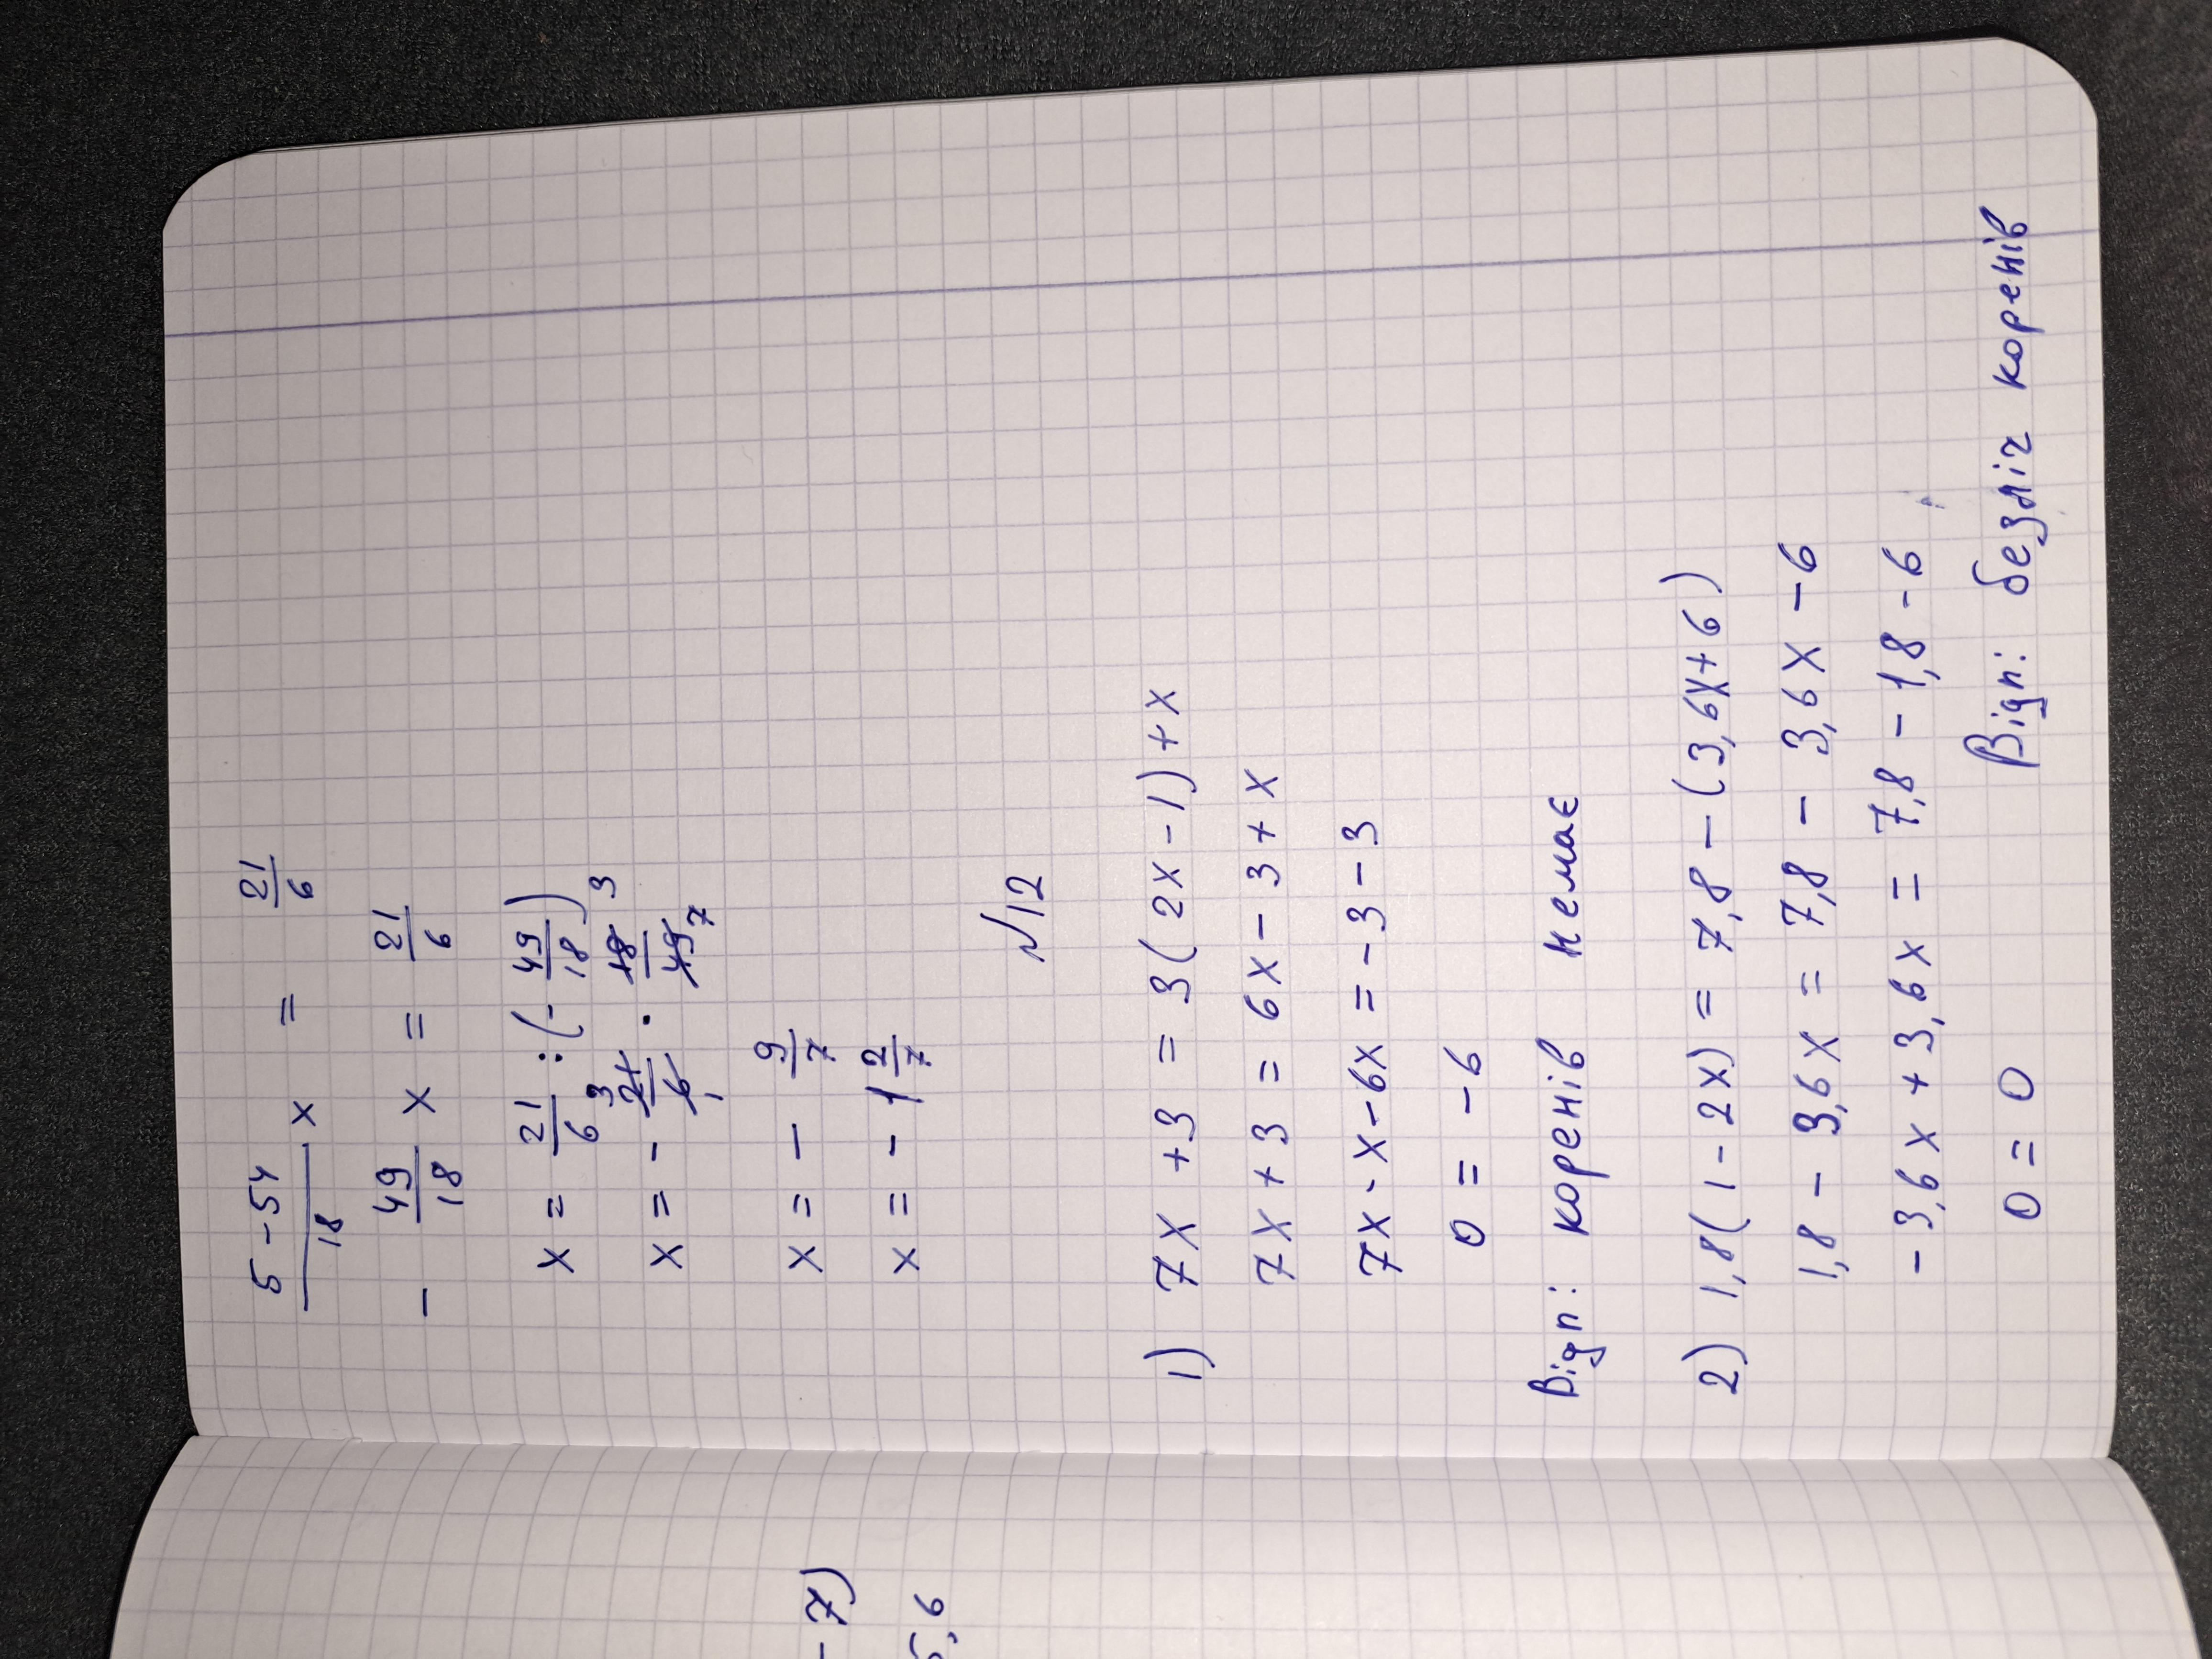 5 - 54 / 18 x = 21/6
- 49/18 x = 21/6
x = 21/6 : (- 49/18)
x = - 21/6 · 18/49 3 1 3 7
x = - 9/7
x = - 1 2/7
№12
1) 7x + 3 = 3(2x - 1) + x
7x + 3 = 6x - 3 + x
7x - x - 6x = -3 - 3
0 = -6
Відп: коренів немає
2) 1,8(1 - 2x) = 7,8 - (3,6x + 6)
1,8 - 3,6x = 7,8 - 3,6x - 6
-3,6x + 3,6x = 7,8 - 1,8 - 6
0 = 0 Відп: безліч коренів
- 7)
5,6